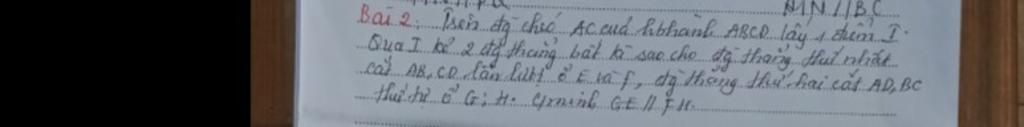 MN // BC
Bài 2. Trên đg chéo AC của hbhành ABCD lấy 1 điểm I.
Qua I kẻ 2 đg thẳng bất kì sao cho đg thẳng thứ nhất
cắt AB, CD lần lượt ở E và F, đg thẳng thứ hai cắt AD, BC
thứ tự ở G; H. Cminh GE // FH.